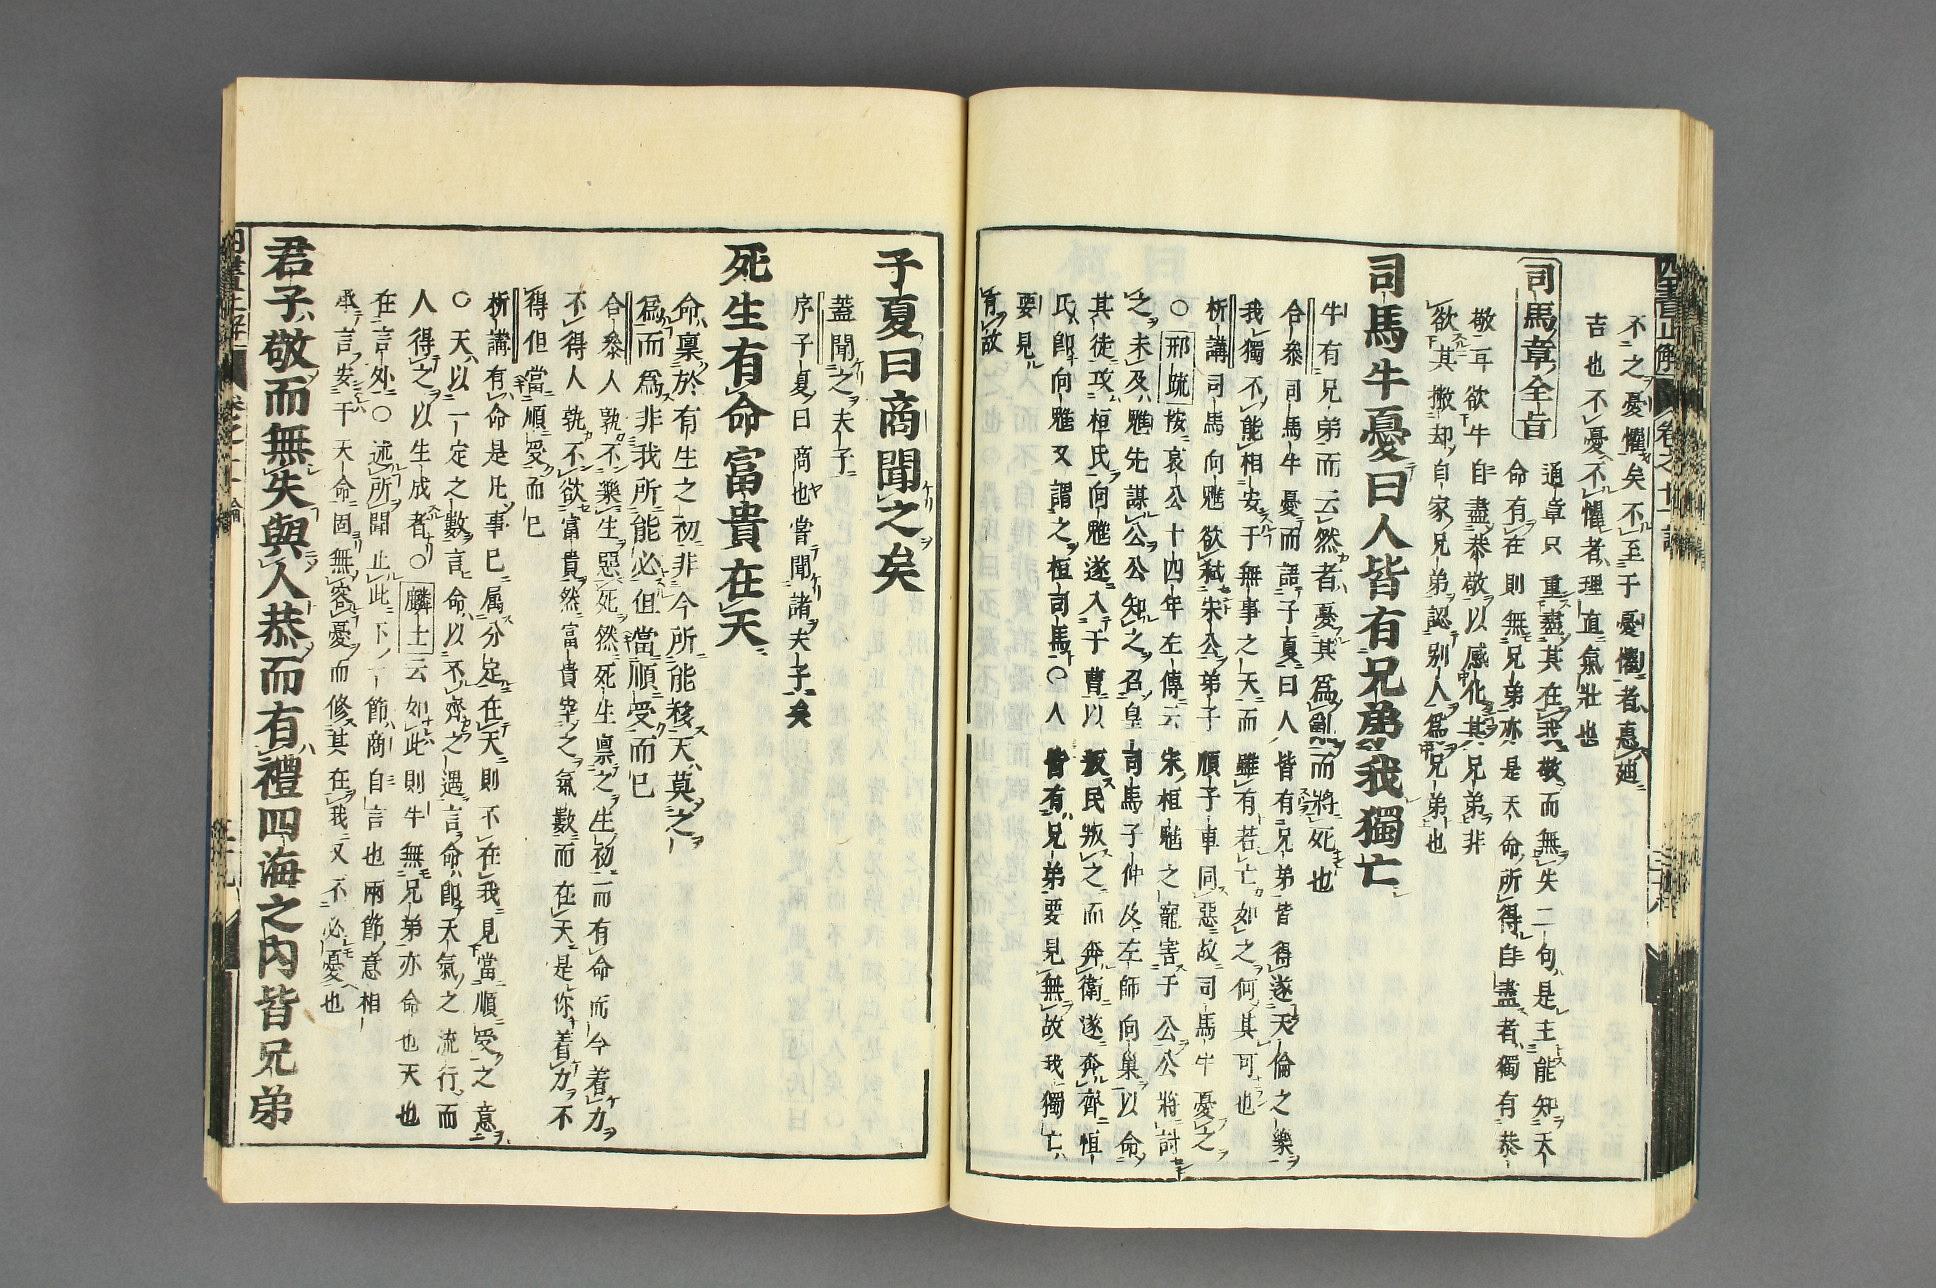 不之憂懼矣不至于憂懼者惪廸
吉也不憂不懼者理直氣壯也
司馬章全旨
通章只重盡其在我敬而無失二句是主能知天
命有在則無兄弟亦是天命所得自盡者獨有恭
敬耳欲牛自盡恭敬以感化其兄弟非
欲其撇却自家兄弟認別人爲兄弟也
司馬牛憂曰人皆有兄弟我獨亡
牛有兄弟而云然者憂其爲亂而將死也
合參司馬牛憂而語子夏曰人皆有兄弟皆得遂天倫之樂
我獨不能相安于無事之天而雖有若亡如之何其可也
析講司馬向魋欲弑宋公弟子子順子車同惡故司馬牛憂之
○邢疏按哀公十四年左傳云宋桓魋之寵害于公公將討
之未及魋先謀公公知之召皇司馬子仲及左師向巢以命
其徒攻桓氏向魋遂入于曹以叛民叛之而奔衛遂奔齊惧
氏卽向魋又謂之桓司馬○人皆有兄弟要見無故我獨亡
要見
有故
子夏曰商聞之矣
蓋聞之夫子
序子夏曰商也嘗聞諸夫子矣
死生有命富貴在天
命稟於有生之初非今所能移天莫之
爲而爲非我所能必但當順受而已
合參人孰不樂生惡死然死生禀之生初而有命而今着力
不得人孰不欲富貴然富貴宰之氣數而在天是你着力不
得但當順受而已
析講有命是凡事已属分定在天則不在我見當順受之意
○天以一定之數言命以不齊之遇言命卽天氣之流行而
人得之以生成者○麟士云如此則牛無兄弟亦命也天也
在言外○述所聞止此下一節商自言也兩節意相
承言安于天命固無容憂而修其在我又不必憂也
君子敬而無失與人恭而有禮四海之內皆兄弟